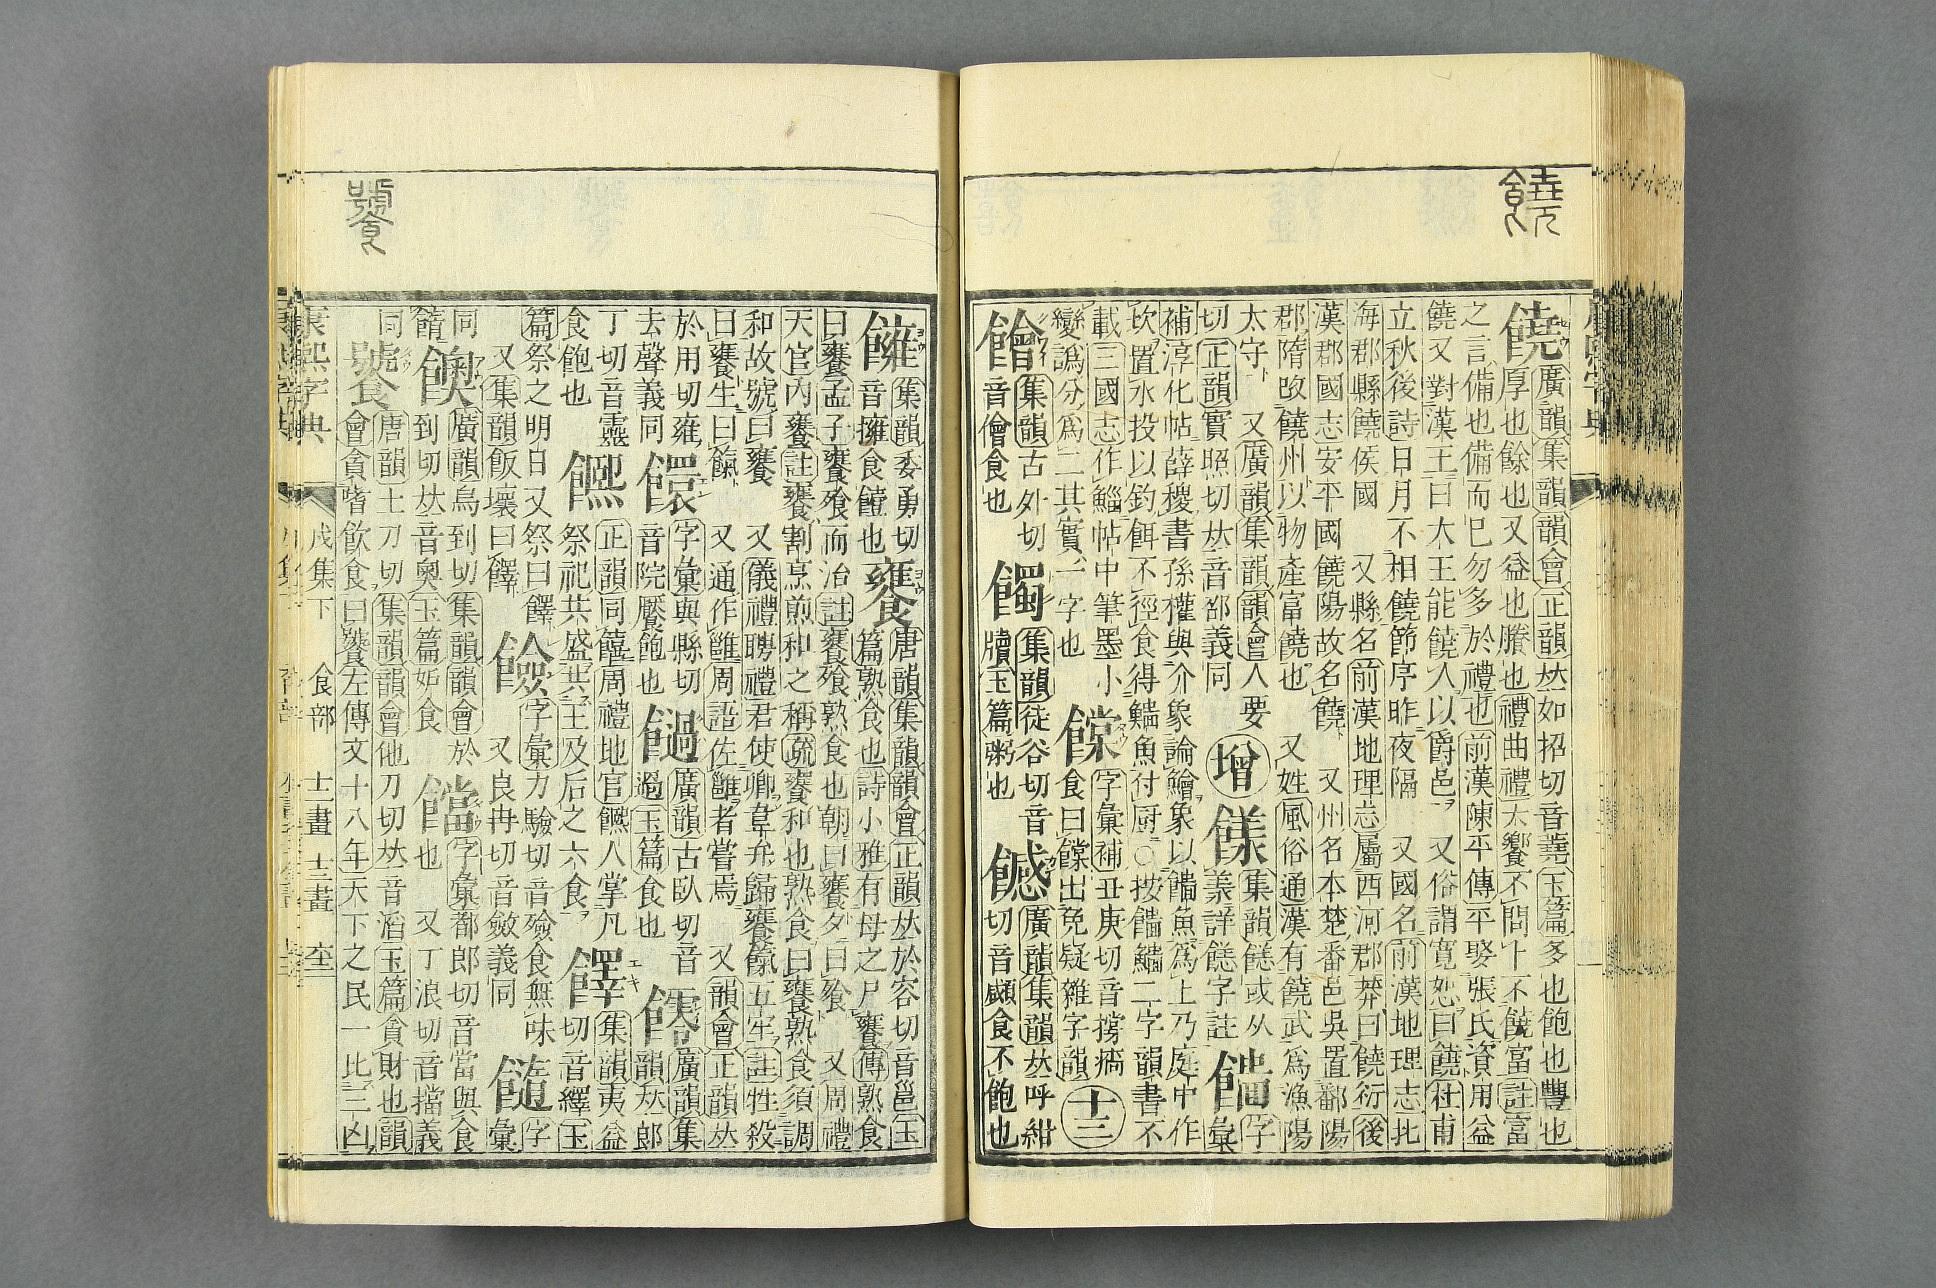 饒
饒廣韻集韻韻會正韻𠀤如招切音蕘玉篇多也飽也豐也
厚也餘也又益也賸也禮曲禮大饗不問卜不饒富註富
之言備也備而已勿多於禮也前漢陳平傳平娶張氏資用益
饒又對漢王曰大王能饒人以爵邑又俗謂寬恕曰饒杜甫
立秋後詩日月不相饒節序昨夜隔又國名前漢地理志北
海郡縣饒侯國又縣名前漢地理志屬西河郡莽曰饒衍後
漢郡國志安平國饒陽故名饒又州名本楚番邑吳置鄱陽
郡隋改饒州以物產富饒也又姓風俗通漢有饒武爲漁陽
太守又廣韻集韻韻會人要
切正韻實照切𠀤音邵義同增
補淳化帖薛稷書孫權與介象論鱠象以䭨魚爲上乃庭中作
坎置水投以釣餌不徑食得鯔魚付厨○按䭨鯔二字韻書不
載三國志作鯔帖中筆墨小
變譌分爲二其實一字也
食曰饓出免疑雜字韻十三
字彙補丑庚切音撐
鱠集韻古外切
音儈食也
集韻徒谷切音
牘玉篇粥也
廣韻集韻𠀤呼紺
切音顑食不飽也
饔
集韻委勇切
音擁食饐也
饔唐韻集韻韻會正韻𠀤於容切音邕玉
篇熟食也詩小雅有母之尸饔傳熟食
曰饔孟子饔飧而治註饔飧熟食也朝曰饔夕曰飧又周禮
天官內饔註饔割烹煎和之稱疏饔和也熟食曰饔熟食須調
和故號曰饔又儀禮聘禮君使卿韋弁歸饔餼五牢註牲殺
曰饔生曰餼又通作雝周語佐雝者嘗焉又韻會正韻𠀤
於用切雍
去聲義同
字彙與縣切
音院饜飽也
廣韻古臥切音
過玉篇食也
廣韻集
韻𠀤郎
丁切音靈
食飽也
饎正韻同饎周禮地官饎人掌凡
祭祀共盛共王及后之六食
饆集韻夷益
切音繹玉
篇祭之明日又祭曰饆
又集韻飯壞曰饆
字彙力驗切音殮食無味
又良冉切音斂義同
字彙
同
廣韻烏到切集韻韻會於
到切𠀤音奧玉篇妬食
也
字彙都郎切音當與食
又丁浪切音擋義
同
饕唐韻土刀切集韻韻會他刀切𠀤音滔玉篇貪財也韻
會貪嗜飲食曰饕左傳文十八年天下之民一比三凶
康熙字典
戌集下
食部
十二畫
十三畫